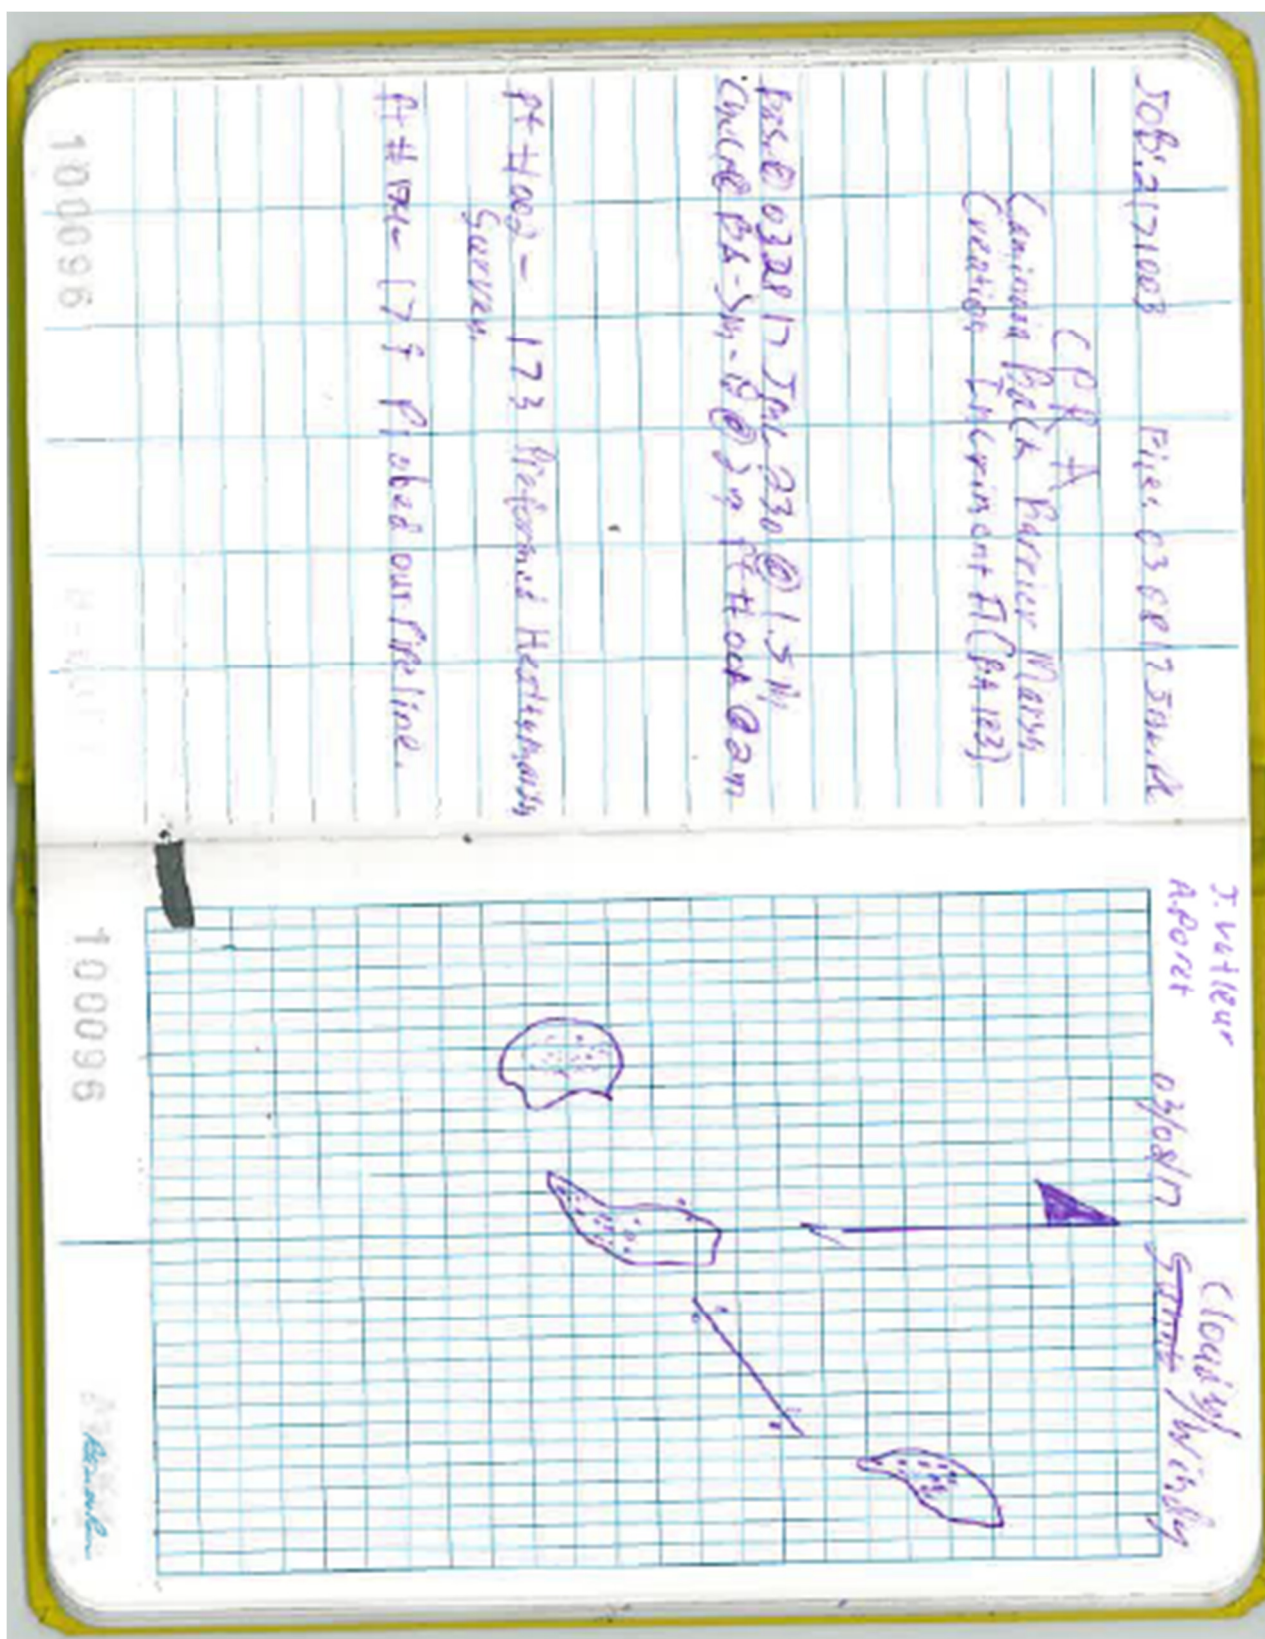 JOB: 2171003 File: 030817
CPRA
Caminada Back Barrier Marsh
Creation Incriment II (BA 193)
Base @ 032817 @ 1.5 M
Check BA-Sm- @ Pt # @ 2m
Pt # 002 - 173 Preformed Healthy marsh
Survey.
Pt # 174 - 179 Probed our Pipeline.
100096
J.
A. Poret
03/08/17
Cloudy/
Sunny/Windy
100096